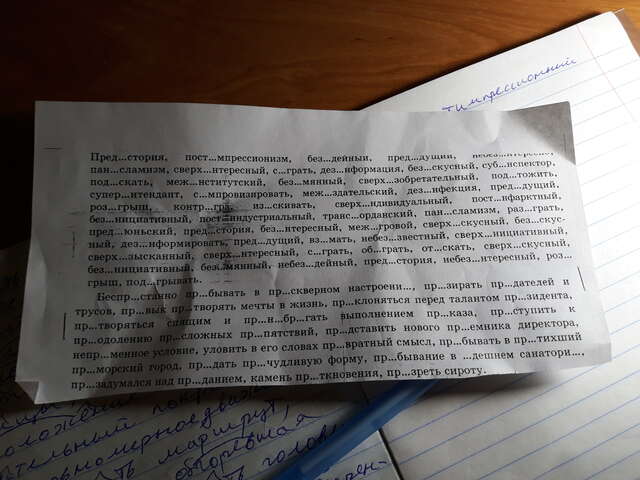 тимпрессионный
Пред...стория, пост...мпрессионизм, без...дейный, пред...дущий, небез...нтересно,
пан...сламизм, сверх...нтересный, с...грать, дез...нформация, без...скусный, суб...нспектор,
под...скать, меж...нститутский, без...мянный, сверх...зобретательный, под...тожить,
супер...нтендант, с...мпровизировать, меж...здательский, дез...нфекция, пред...дущий,
роз...грыш, контр...гра, из...скивать, сверх...ндивидуальный, пост...нфарктный,
без...нициативный, пост...ндустриальный, транс...орданский, пан...сламизм, раз...грать,
пред...юньский, пред...стория, без...нтересный, меж...гровой, сверх...скусный, без...скус-
ный, дез...нформировать, пред...дущий, вз...мать, небез...звестный, сверх...нициативный,
сверх...зысканный, сверх...нтересный, с...грать, об...грать, от...скать, сверх...скусный,
без...нициативный, без...мянный, небез...дейный, пред...стория, небез...нтересный, роз...
грыш, под...грывать.
Беспр...станно пр...бывать в пр...скверном настроени..., пр...зирать пр...дателей и
трусов, пр...вык пр...творять мечты в жизнь, пр...клоняться перед талантом пр...зидента,
пр...творяться спящим и пр...н...бр...гать выполнением пр...каза, пр...ступить к
пр...одолению пр...сложных пр...пятствий, пр...дставить нового пр...емника директора,
непр...менное условие, уловить в его словах пр...вратный смысл, пр...бывать в пр...тихший
пр...морский город, пр...дать пр...чудливую форму, пр...бывание в ...дешнем санатори...,
пр...задумался над пр...данием, камень пр...ткновения, пр...зреть сироту.
маршрут,
обгоревшая
голов